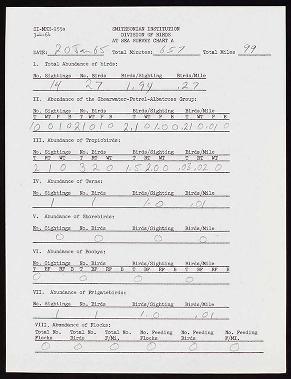 SI-MNH-959a SMITHSONIAN INSTITUTION
DIVISION OF BIRDS
AT SEA SURVEY CHART A
DATE: 20 Jan 65 Total Minutes: 657 Total Miles 99
I. Total Abundance of birds:
No. Sightings No. Birds Birds/Sighting Birds/Mile
14 27 1.94 .27
II. Abundance of the Shearwater-Petrel-Albatross Group:
No. Sightings No. Birds Birds/Sighting Birds/Mile
T WT P B T WT P B T WT P B T WT P B
III. Abundance of Tropicbirds:
No. Sightings No. Birds Birds/Sighting Birds/Mile
T RT WT T RT WT T RT WT T RT WT
2 1 0 3 2 0 1.5 2.0 0 .03 .02 0
IV. Abundance of Terns:
No. Sightings No. Birds Birds/Sighting Birds/Mile
1 1 1.0 .01
V. Abundance of Shorebirds:
No. Sightings No. Birds Birds/Sighting Birds/Mile
0 0 0 0
VI. Abundance of Boobys:
No. Sightings No. Birds Birds/Sighting Birds/Mile
T BF RF B T BF RF B T BF RF B T BF RF B
0 0 0 0
VII. Abundance of Frigatebirds:
No. Sightings No. Birds Birds/Sighting Birds/Mile
1 1 1.0 .01
VIII. Abundance of Flocks:
Total No. Total No. Total No. No. Feeding No. Feeding No. Feeding
Flocks Birds F/Mi. Flocks Birds F/Mi.
0 0 0 0 0 0